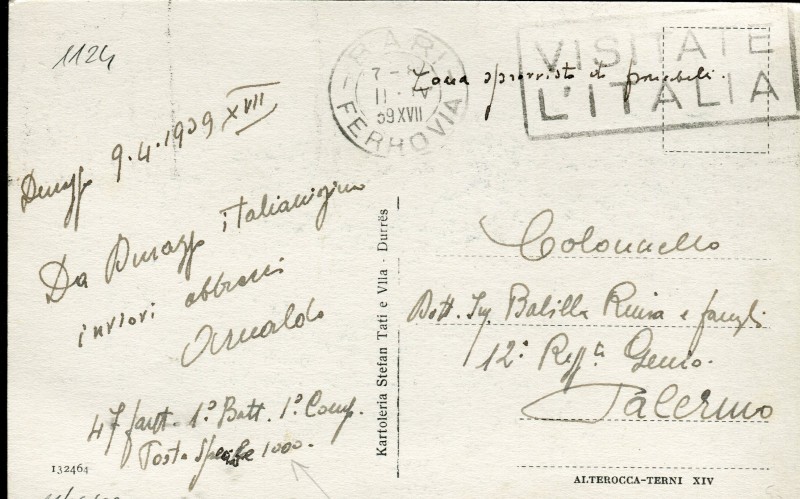 1124
BARI
FERROVIA
7-8
11·IV
39 XVII
VISITATE
L'ITALIA
Zona sprovvista di francobolli.
Durazzo 9.4.1939 XVII
Da Durazzo italianissima
inviovi abbracci
Arnaldo
47 fant. 1º Batt. 1ª Comp.
Posta Speciale 1000.
132464
Kartoleria Stefan Tati e Vlla - Durrës
Colonnello
Dott. Ing. Balilla Rima e famigli
12º Regg. Genio.
Palermo
ALTEROCCA-TERNI XIV